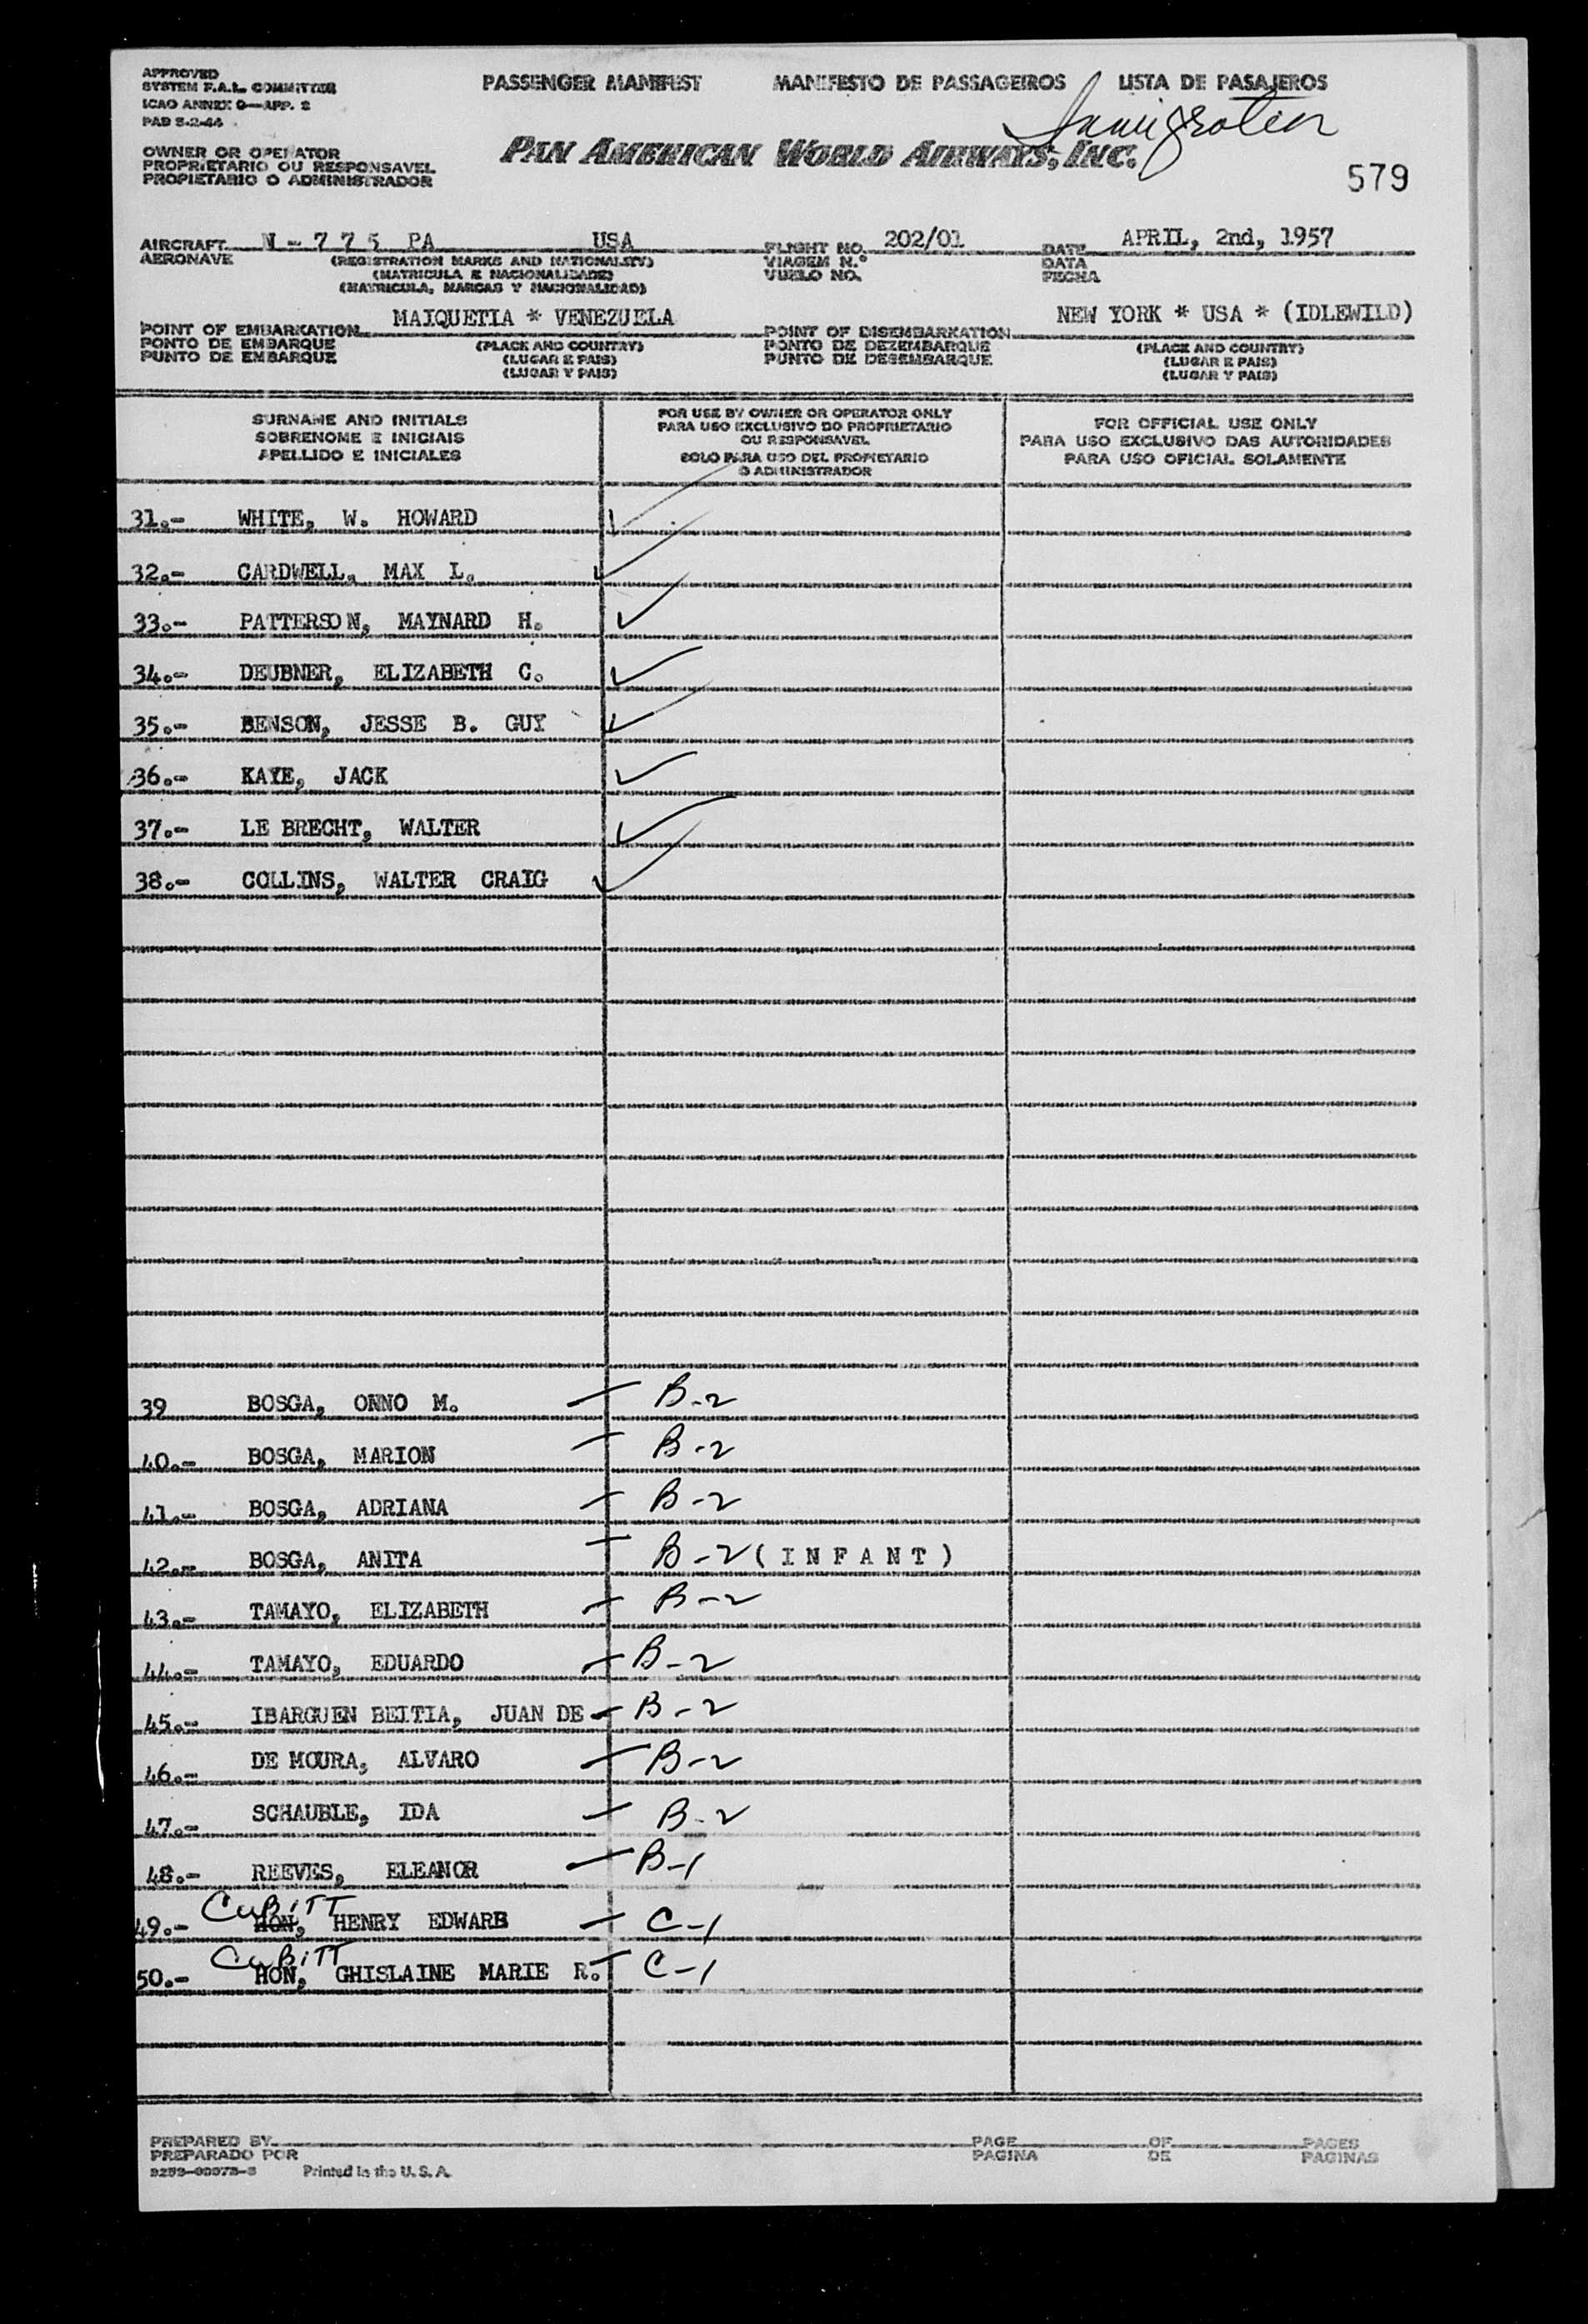 APPROVED
SYSTEM F.A.L. COMMITTEE
ICAO ANNEX 9—APP. 2
PAD 5-2-44
PASSENGER MANIFEST MANIFESTO DE PASSAGEIROS LISTA DE PASAJEROS
Immigration
OWNER OR OPERATOR
PROPRIETARIO OU RESPONSAVEL
PROPIETARIO O ADMINISTRADOR
PAN AMERICAN WORLD AIRWAYS, INC.
579
AIRCRAFT N - 7 7 5 PA USA FLIGHT NO. 202/01 DATE APRIL, 2nd, 1957
AERONAVE (REGISTRATION MARKS AND NATIONALITY) VIAGEM N.° DATA
(MATRICULA E NACIONALIDADE) VUELO NO. FECHA
(MATRICULA, MARCAS Y NACIONALIDAD)
POINT OF EMBARKATION MAIQUETIA * VENEZUELA POINT OF DISEMBARKATION NEW YORK * USA * (IDLEWILD)
PONTO DE EMBARQUE (PLACE AND COUNTRY) PONTO DE DEZEMBARQUE (PLACE AND COUNTRY)
PUNTO DE EMBARQUE (LUGAR E PAIS) PUNTO DE DESEMBARQUE (LUGAR E PAIS)
(LUGAR Y PAIS) (LUGAR Y PAIS)
SURNAME AND INITIALS
SOBRENOME E INICIAIS
APELLIDO E INICIALES
FOR USE BY OWNER OR OPERATOR ONLY
PARA USO EXCLUSIVO DO PROPRIETARIO
OU RESPONSAVEL
SOLO PARA USO DEL PROPIETARIO
O ADMINISTRADOR
FOR OFFICIAL USE ONLY
PARA USO EXCLUSIVO DAS AUTORIDADES
PARA USO OFICIAL SOLAMENTE
31.- WHITE, W. HOWARD ✓
32.- CARDWELL, MAX L. ✓
33.- PATTERSON, MAYNARD H. ✓
34.- DEUBNER, ELIZABETH C. ✓
35.- BENSON, JESSE B. GUY ✓
36.- KAYE, JACK ✓
37.- LE BRECHT, WALTER ✓
38.- COLLINS, WALTER CRAIG ✓
39 BOSGA, ONNO M. — B-2
40.- BOSGA, MARION — B-2
41.- BOSGA, ADRIANA — B-2
42.- BOSGA, ANITA — B-2 ( I N F A N T )
43.- TAMAYO, ELIZABETH — B-2
44.- TAMAYO, EDUARDO — B-2
45.- IBARGUEN BEITIA, JUAN DE — B-2
46.- DE MOURA, ALVARO — B-2
47.- SCHAUBLE, IDA — B-2
48.- REEVES, ELEANOR — B-1
CUBITT
49.- HON, HENRY EDWARB — C-1
CUBITT
50.- HON, GHISLAINE MARIE R. — C-1
PREPARED BY PAGE OF PAGES
PREPARADO POR PAGINA DE PAGINAS
Printed in the U. S. A.